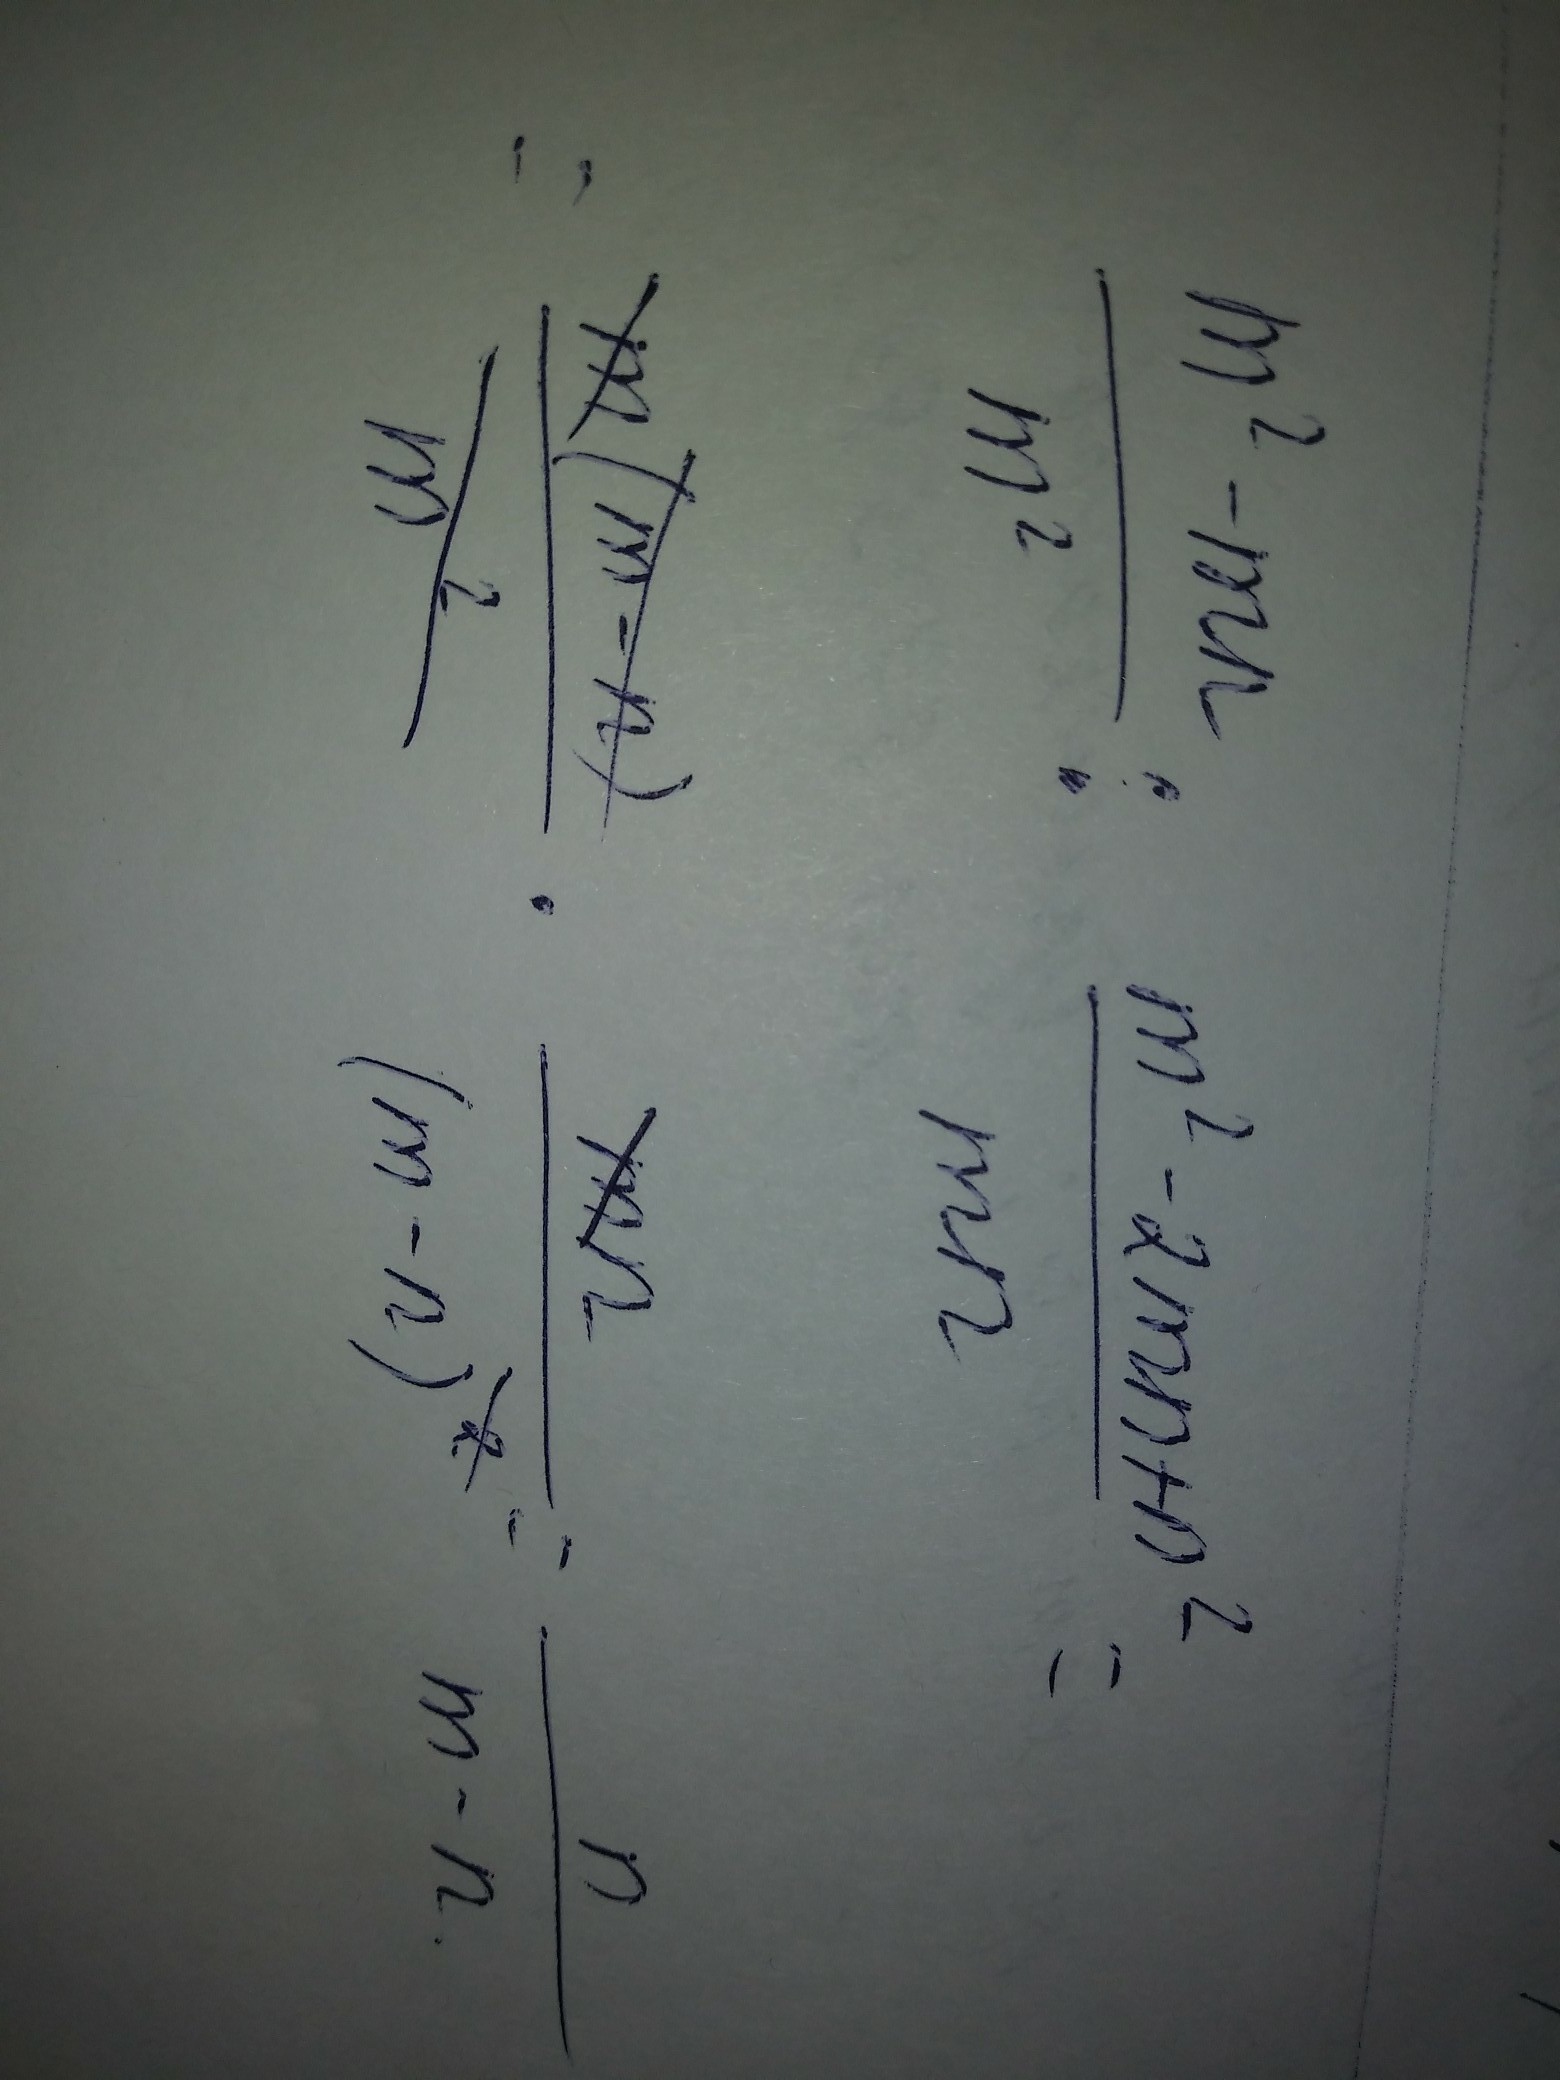 m² - mn / m² : m² - 2mn + n² / mn =
= m(m - n) / m² · mn / (m - n)² = n / m - n.